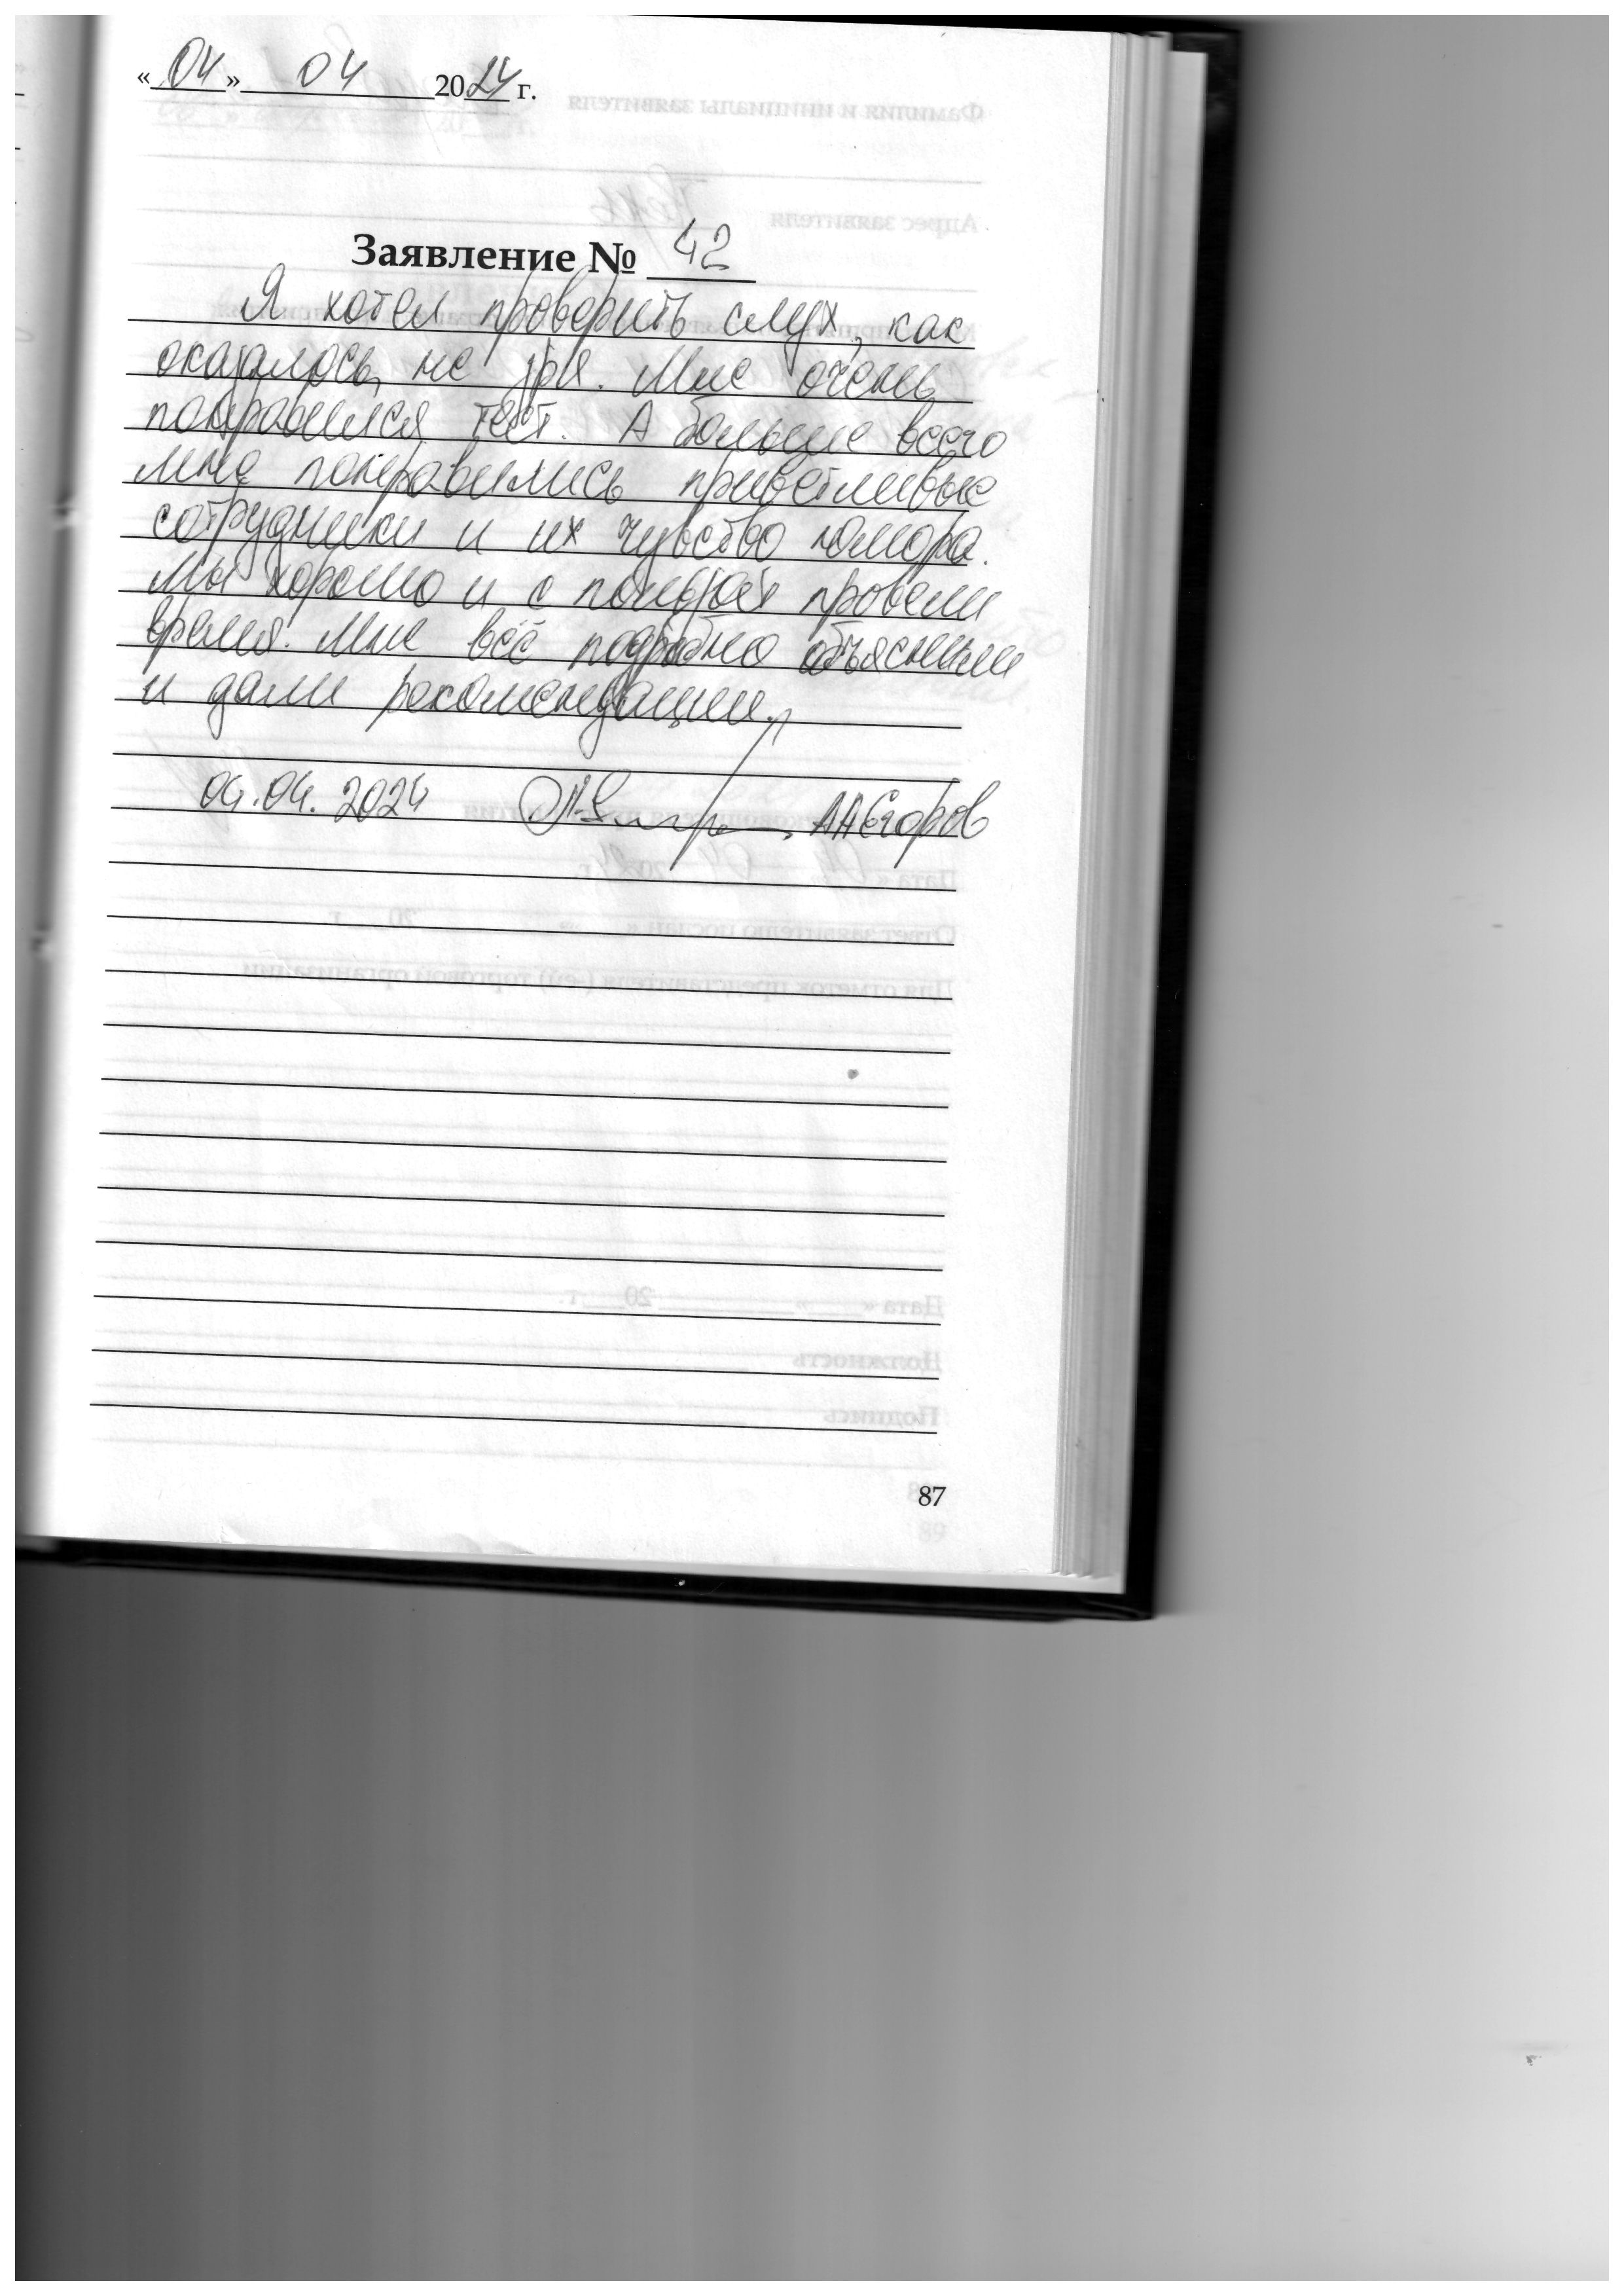 «04» 04 2024 г.
Заявление № 42
Я хотел проверить слух, как
оказалось, не зря. Мне очень
понравился тест. А больше всего
мне понравились приветливые
сотрудники и их чувство юмора.
Мы хорошо и с пользой провели
время. Мне всё подробно объяснили
и дали рекомендации.
04.04.2024 А.Н.Егоров
87